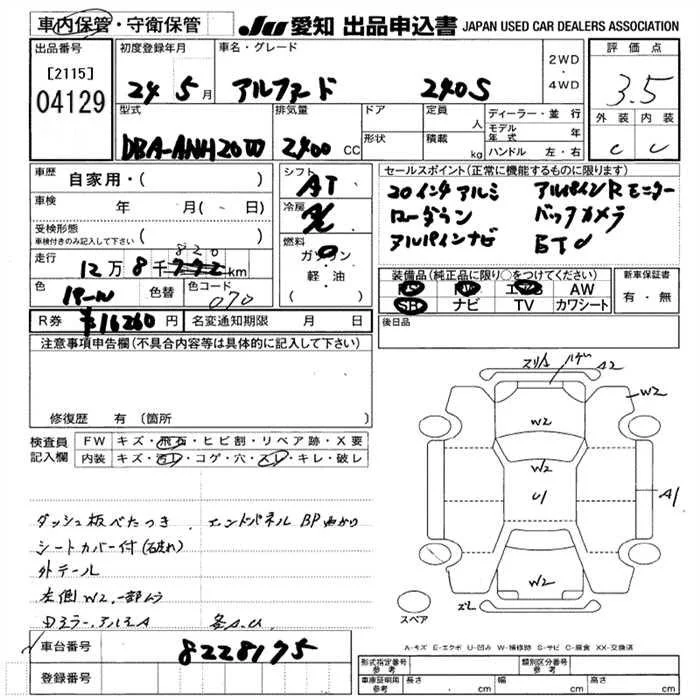 車内保管・守衛保管
JU 愛知 出品申込書 JAPAN USED CAR DEALERS ASSOCIATION
出品番号 初度登録年月 車名・グレード 2WD・4WD 評価点
[2115] 04129
24 5月 アルファード 240S
3.5
型式 排気量 ドア 定員 人 ディーラー・並行
外装 内装
DBA-ANH20W 2400 CC 形状 積載 kg モデル年式 年
ハンドル 左・右
C C
車歴 自家用・( )
シフト AT
セールスポイント(正常に機能するものに限ります)
車検 年 月( 日)
冷房
20インチアルミ アルパインRモニター
受検形態
車検付きのみ記入して下さい ( )
ローダウン バックカメラ
燃料 ガソリン・軽・油 ( )
アルパインナビ
走行 12万8千820 772km
装備品(純正品に限り○をつけてください) 新車保証書
色 パール 色替 色コード 070
PS PW エアB AW 有・無
SR ナビ TV カワシート
R券 ¥16260円 名変通知期限 月 日
後日品
注意事項申告欄(不具合内容等は具体的に記入して下さい)
修復歴 有 (箇所 )
検査員記入欄 FW キズ・飛石・ヒビ割・リペア跡・X要
内装 キズ・汚レ・コゲ・穴・スレ・キレ・破レ
スリキズ ハゲ A2
W2
W2
W2
U1
A1
W2
スペア
ダッシュ板べたつき エンドパネルBP曲がり
シートカバー付(破れ)
外テール
左側W2、一部ムラ
各A.U
A-キズ E-エクボ U-凹み W-補修跡 S-サビ C-腐食 XX-交換済
車台番号 8228175
登録番号
形式指定番号 参考 類別区分番号 参考
車庫証明用 参考 長さ cm 幅 cm 高さ cm